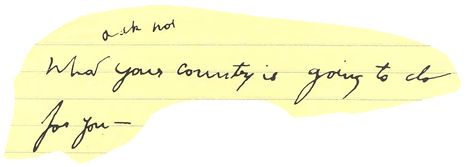 ask not
What your country is going to do
for you—